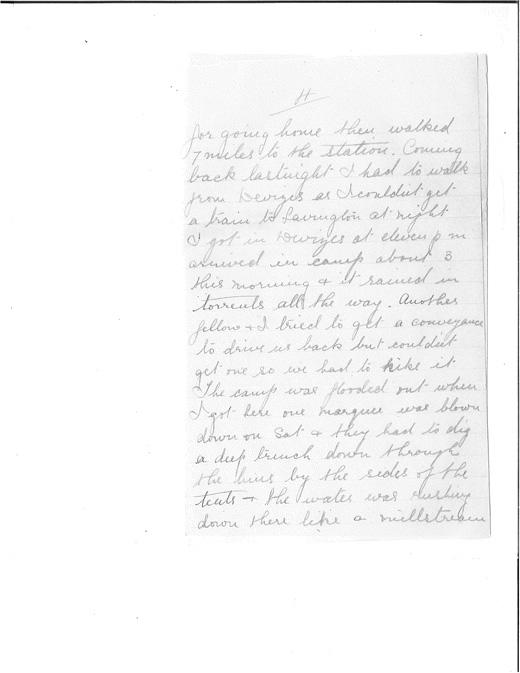 4
for going home then walked
7 miles to the station. Coming
back lastnight I had to walk
from Devizes as I couldn't get
a train to Lavington at night
I got in Devizes at eleven p m
arrived in camp about 3
this morning & it rained in
torrents all the way. Another
fellow & I tried to get a conveyance
to drive us back but couldn't
get one so we had to hike it
The camp was flooded out when
I got here one marquee was blown
down on Sat & they had to dig
a deep trench down through
the lines by the sides of the
tents & the water was rushing
down there like a millstream